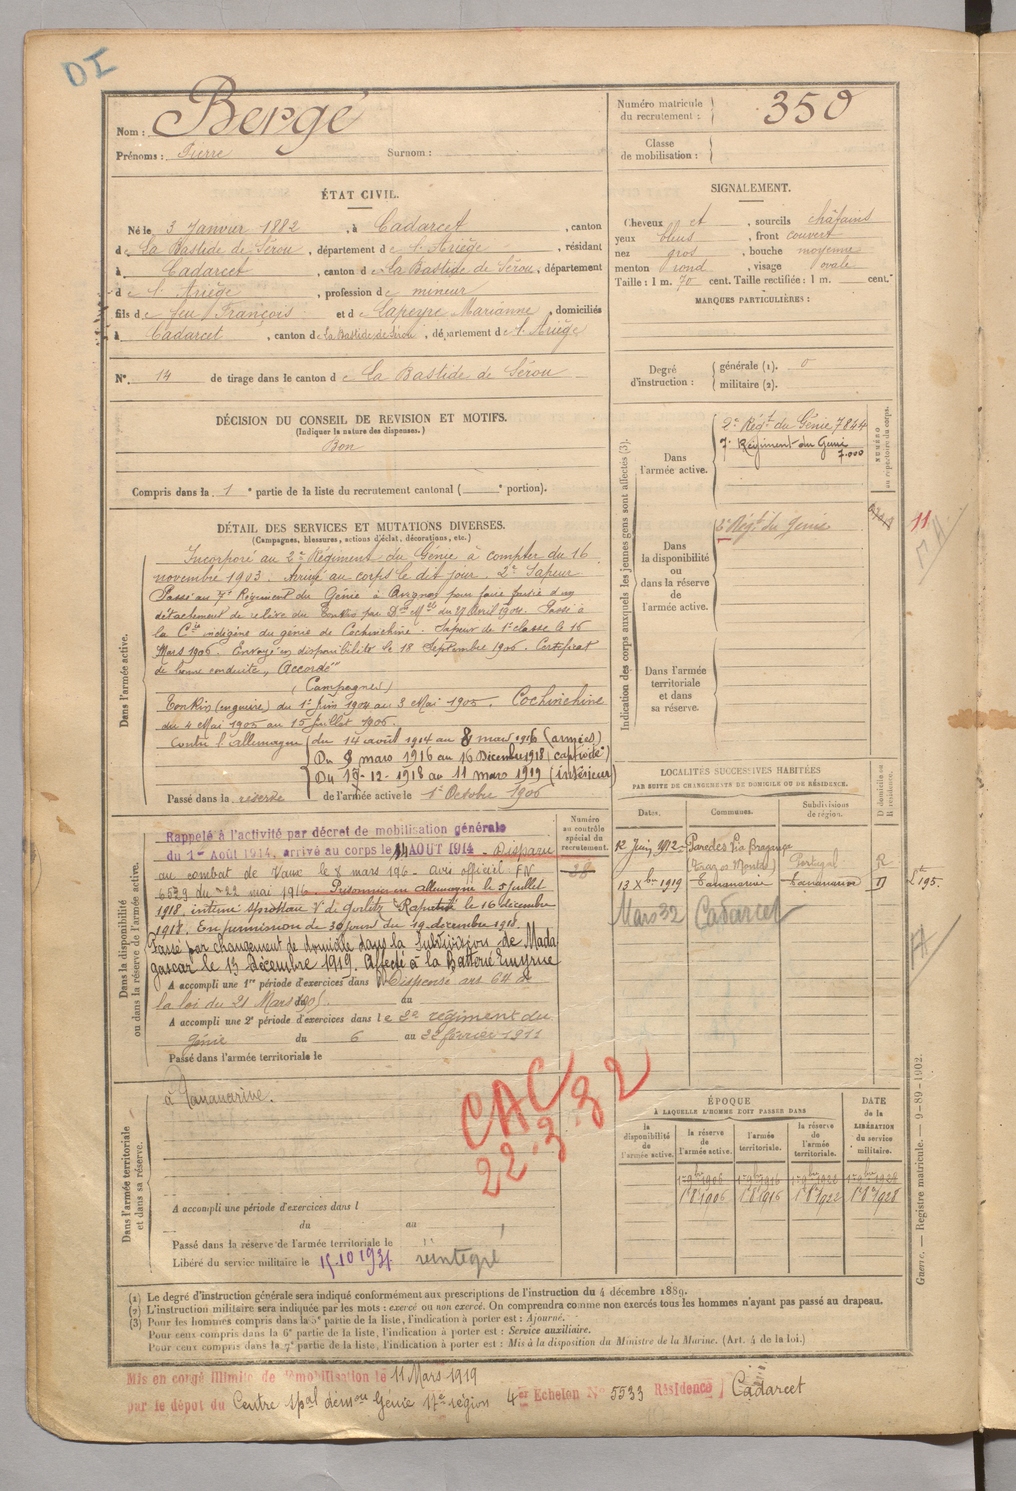 DI
Nom : Bergé
Prénoms : Pierre Surnom :
Numéro matricule du recrutement : 350
Classe de mobilisation :
ÉTAT CIVIL.
Né le 3 Janvier 1882, à Cadarcet, canton
de La Bastide de Sérou, département de l'Ariège, résidant
à Cadarcet, canton de La Bastide de Sérou, département
de l'Ariège, profession de mineur
fils de feu François et de Lapeyre Marianne, domiciliés
à Cadarcet, canton de La Bastide de Sérou, département de l'Ariège
N° 14 de tirage dans le canton de La Bastide de Sérou
SIGNALEMENT.
Cheveux et, sourcils châtains
yeux bleus, front couvert
nez gros, bouche moyenne
menton rond, visage ovale
Taille : 1 m. 70 cent. Taille rectifiée : 1 m. cent.
MARQUES PARTICULIÈRES :
Degré d'instruction : générale (1). 0
militaire (2).
DÉCISION DU CONSEIL DE REVISION ET MOTIFS.
(Indiquer la nature des dispenses.)
Bon
Compris dans la 1e partie de la liste du recrutement cantonal ( e portion).
DÉTAIL DES SERVICES ET MUTATIONS DIVERSES.
(Campagnes, blessures, actions d'éclat, décorations, etc.)
Dans l'armée active.
Incorporé au 2e Régiment du Génie à compter du 16
novembre 1903. Arrivé au corps le dit jour. 2e Sapeur
Passé au 7e Régiment du Génie à Avignon pour faire partie d'un
détachement de relève du Tonkin par Don Mlle du 27 Avril 1904. Passé à
la Cie indigène du génie de Cochinchine. Sapeur de 1e classe le 16
Mars 1906. Envoyé en disponibilité le 18 Septembre 1906. Certificat
de bonne conduite "Accordé"
(Campagnes)
Tonkin (en guerre) du 1er Juin 1904 au 3 Mai 1905. Cochinchine
du 4 Mai 1905 au 15 Juillet 1906.
Contre l'Allemagne du 14 août 1914 au 8 mars 1916 (armées)
Du 9 mars 1916 au 16 Décembre 1918 (captivité)
Du 17-12-1918 au 11 mars 1919 (intérieur)
Passé dans la réserve de l'armée active le 1er Octobre 1906
Indication des corps auxquels les jeunes gens sont affectés (3).
NUMÉRO au répertoire du corps.
Dans l'armée active.
2e Régt du Génie 7844
7e Régiment du Génie
7.000
Dans la disponibilité ou dans la réserve de l'armée active.
2e Régt du Génie
11
Dans l'armée territoriale et dans sa réserve.
Dans la disponibilité ou dans la réserve de l'armée active.
Numéro au contrôle spécial du recrutement.
Rappelé à l'activité par décret de mobilisation générale
du 1er Août 1914, arrivé au corps le 14 AOUT 1914 - Disparu
au combat de Vaux le 8 mars 196 - Avis officiel FN
6529 du 22 mai 1916. Prisonnier en Allemagne le 5 Juillet
1918, interné Sprottau V d Gorlitz Rapatrié le 16 décembre
1918. En permission de 30 jours du 19 décembre 1918.
Passé par changement de domicile dans la Subdivision de Mada
gascar le 13 Décembre 1919. Affecté à la Batterie Emyrne
A accompli une 1re période d'exercices dans Dispensé art 64 de
la loi du 21 Mars 1905. du au
A accompli une 2e période d'exercices dans le 2e régiment du
Génie du 6 au 22 février 1911
Passé dans l'armée territoriale le
LOCALITÉS SUCCESSIVES HABITÉES
PAR SUITE DE CHANGEMENTS DE DOMICILE OU DE RÉSIDENCE.
Dates. Communes. Subdivisions de région. D domicile ou R résidence.
12 Juin 1912 Paredes Via Bragance
(Tras os Montes) Portugal R
13 Xbre 1919 Tananarive Tananarive D
Mars 32 Cadarcet
Dans l'armée territoriale et dans sa réserve.
à Tananarive.
CAC
22.3.32
A accompli une période d'exercices dans l
du au
Passé dans la réserve de l'armée territoriale le
Libéré du service militaire le 15-10 1931 réintégré
ÉPOQUE
À LAQUELLE L'HOMME DOIT PASSER DANS
la disponibilité de l'armée active.
la réserve de l'armée active.
l'armée territoriale.
la réserve de l'armée territoriale.
DATE de la LIBÉRATION du service militaire.
1 9bre 1906 1 9bre 1916 1 9bre 1922 1 9bre 1928
1 8e 1906 1 8e 1916 1 8e 1922 1 8e 1928
Guerre. — Registre matricule. — 9-89-1902.
(1) Le degré d'instruction générale sera indiqué conformément aux prescriptions de l'instruction du 4 décembre 1889.
(2) L'instruction militaire sera indiquée par les mots : exercé ou non exercé. On comprendra comme non exercés tous les hommes n'ayant pas passé au drapeau.
(3) Pour les hommes compris dans la 5e partie de la liste, l'indication à porter est : Ajourné.
Pour ceux compris dans la 6e partie de la liste, l'indication à porter est : Service auxiliaire.
Pour ceux compris dans la 7e partie de la liste, l'indication à porter est : Mis à la disposition du Ministre de la Marine. (Art. 4 de la loi.)
Mis en congé illimité de démobilisation le 11 Mars 1919
par le dépôt du Centre spal démou Génie 17e région 4er Echelon N° 5533 Résidence Cadarcet